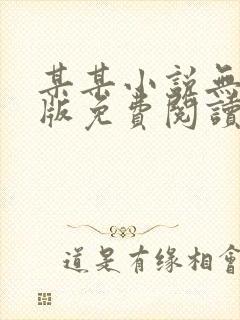 某某小説無
版免費閱讀
道是有缘相會